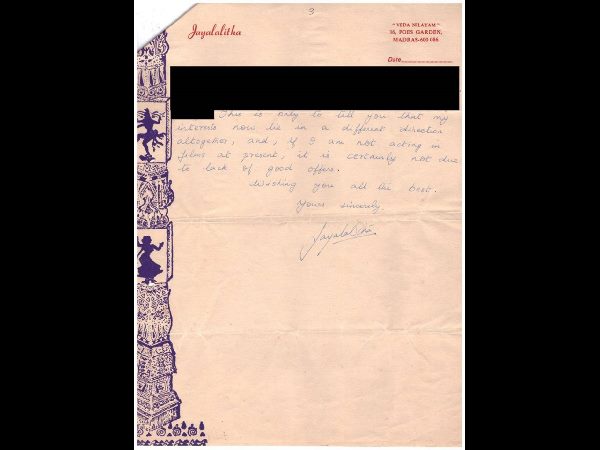 3
Jayalalitha
"VEDA NILAYAM"
36, POES GARDEN,
MADRAS-600 086.
Date
This is only to tell you that my
interests now lie in a different direction
altogether, and, if I am not acting in
films at present, it is certainly not due
to lack of good offers.
Wishing you all the best.
Yours sincerely,
Jayalalitha